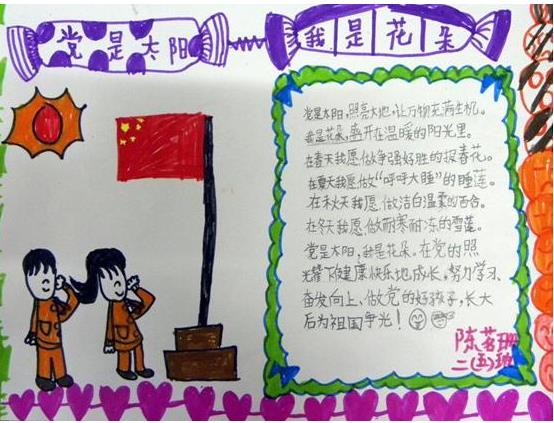 党是太阳
我是花朵
党是太阳,照亮大地,让万物充满生机。
我是花朵,离开在温暖的阳光里。
在春天我愿做争强好胜的报春花。
在夏天我愿做“呼呼大睡”的睡莲。
在秋天我愿做洁白温柔的百合。
在冬天我愿做耐寒耐冻的雪莲。
党是太阳,我是花朵。在党的照
光辉下健康快乐地成长。努力学习、
奋发向上、做党的好孩子,长大
后为祖国争光!
陈茗珊
二(五)班